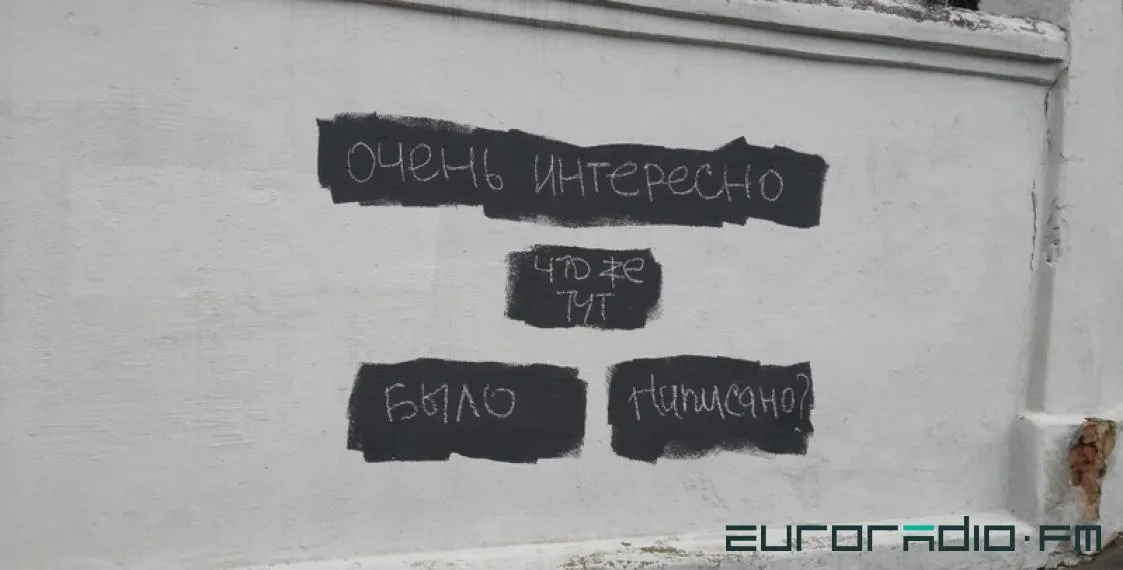 ОЧЕНЬ ИНТЕРЕСНО
ЧТО ЖЕ
ТУТ
БЫЛО Написано?
EURORADIO.FM